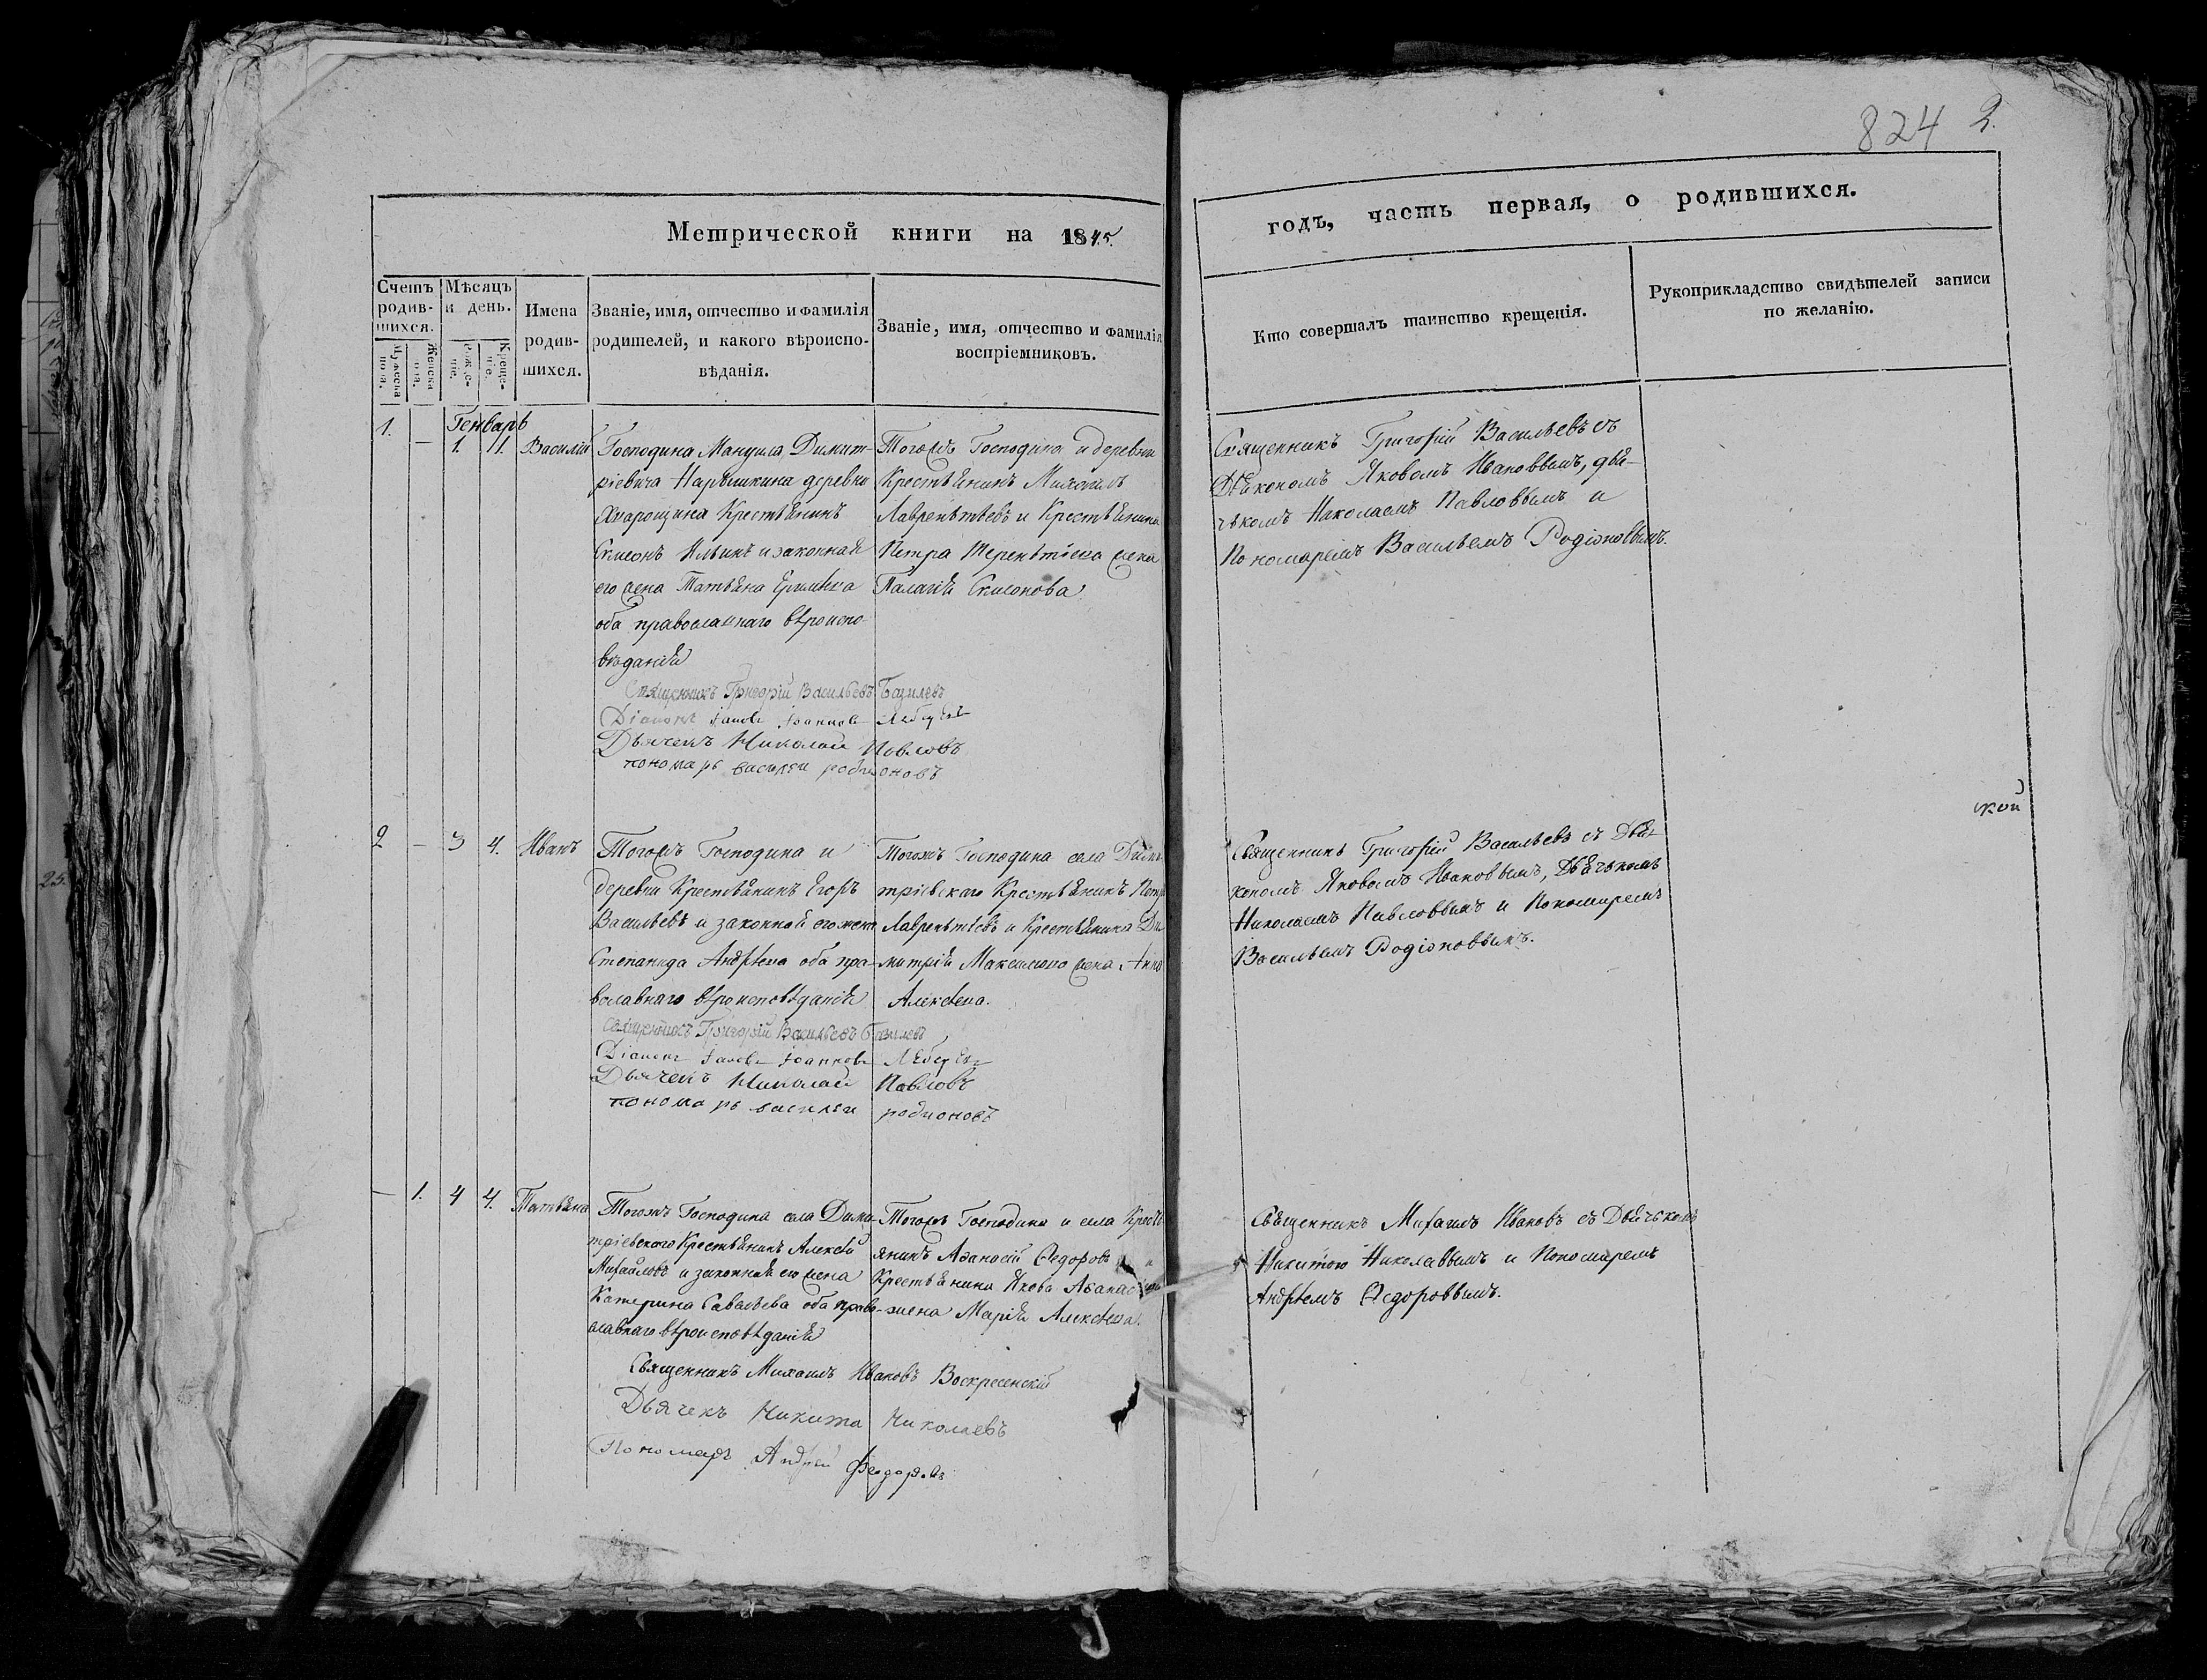 824 2.
Метрической книги на 1845.
годъ, часть первая, о родившихся.
Счетъ родив-шихся.
Мужеска пола.
Женска пола.
Мѣсяцъ и день.
Рожде-ніе.
Креще-ніе.
Имена родив-шихся.
Званіе, имя, отчество и фамилія
родителей, и какого вѣроиспо-
вѣданія.
Званіе, имя, отчество и фамилія
воспріемниковъ.
Кто совершалъ таинство крещенія.
Рукоприкладство свидѣтелей записи
по желанію.
Генварь
1. — 1. 11. Василій
Господина Мануила Димит-
ріевича Нарышкина деревни
Крестьянинъ
Симеонъ Ильинъ и законная
его жена Татьяна
оба православнаго вѣроиспо-
вѣданія
Тогожъ Господина и деревни
Крестьянинъ Михаилъ
Лаврентьевъ и Крестьянина
Петра Терентіева жена
Палагія Симеонова
Священникъ Григорій Васильевъ съ
Діакономъ Яковомъ Ивановымъ, дья-
чкомъ Николаемъ Павловымъ и
Пономаремъ Васильемъ Родіоновымъ.
Священникъ Григорій Васильевъ Базилевъ
Діаконъ Іаковъ Іоанновъ Лебедевъ
Дьячекъ Николай Повловъ
пономарь василеи родионовъ
2 — 3 4. Иванъ
Тогожъ Господина и
деревни Крестьянинъ Егоръ
Васильевъ и законной его жены
Степанида Андрѣева оба пра-
вославнаго вѣроисповѣданія
Тогожъ Господина села Дими-
тріевскаго Крестьянинъ Петръ
Лаврентьевъ и Крестьянина Ди
митрія Максимова жена Анна
Алексѣева.
Священникъ Григорій Васильевъ съ Діа-
кономъ Яковомъ Ивановымъ, Дьячькомъ
Николаемъ Павловымъ и Пономаремъ
Васильемъ Родіоновымъ.
кой
Священникъ Григорій Васильевъ Базилевъ
Діаконъ Іаковъ Іоанновъ Лебедевъ
Дьячекъ Николай Павловъ
пономарь василеи родионовъ
— 1. 4 4. Татьяна
Тогожъ Господина села Дими-
тріевскаго Крестьянинъ Алексѣй
Михайловъ и законная его жена
Катерина Савельева оба право-
славнаго вѣроисповѣданія
Тогожъ Господина и села Кресть
янинъ Аѳанасій Ѳедоровъ и
Крестьянина Якова
жена Марія Алексѣева.
Священникъ Михаилъ Ивановъ съ Дьячькомъ
Никитою Николаевымъ и Пономаремъ
Андрѣемъ Ѳедоровымъ.
Священникъ Михаилъ Ивановъ Воскресенскій
Дьячекъ Никита Николаевъ
Пономарь Андрей Феодоровъ